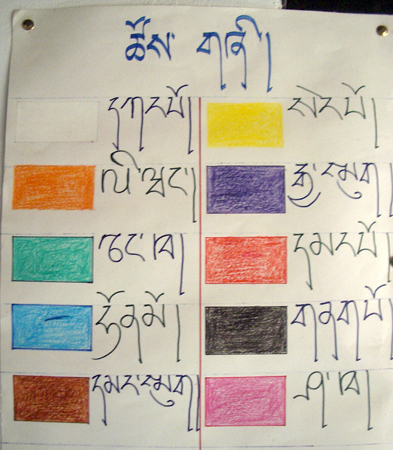 ཚོས་གཞི།
དཀར་པོ། སེར་པོ།
ལི་ཝང་། རྒྱ་སྨུག
ལྗང་ཁ། དམར་པོ།
གནག་པོ།
དམར་སྨུག ཤ་ཁ།